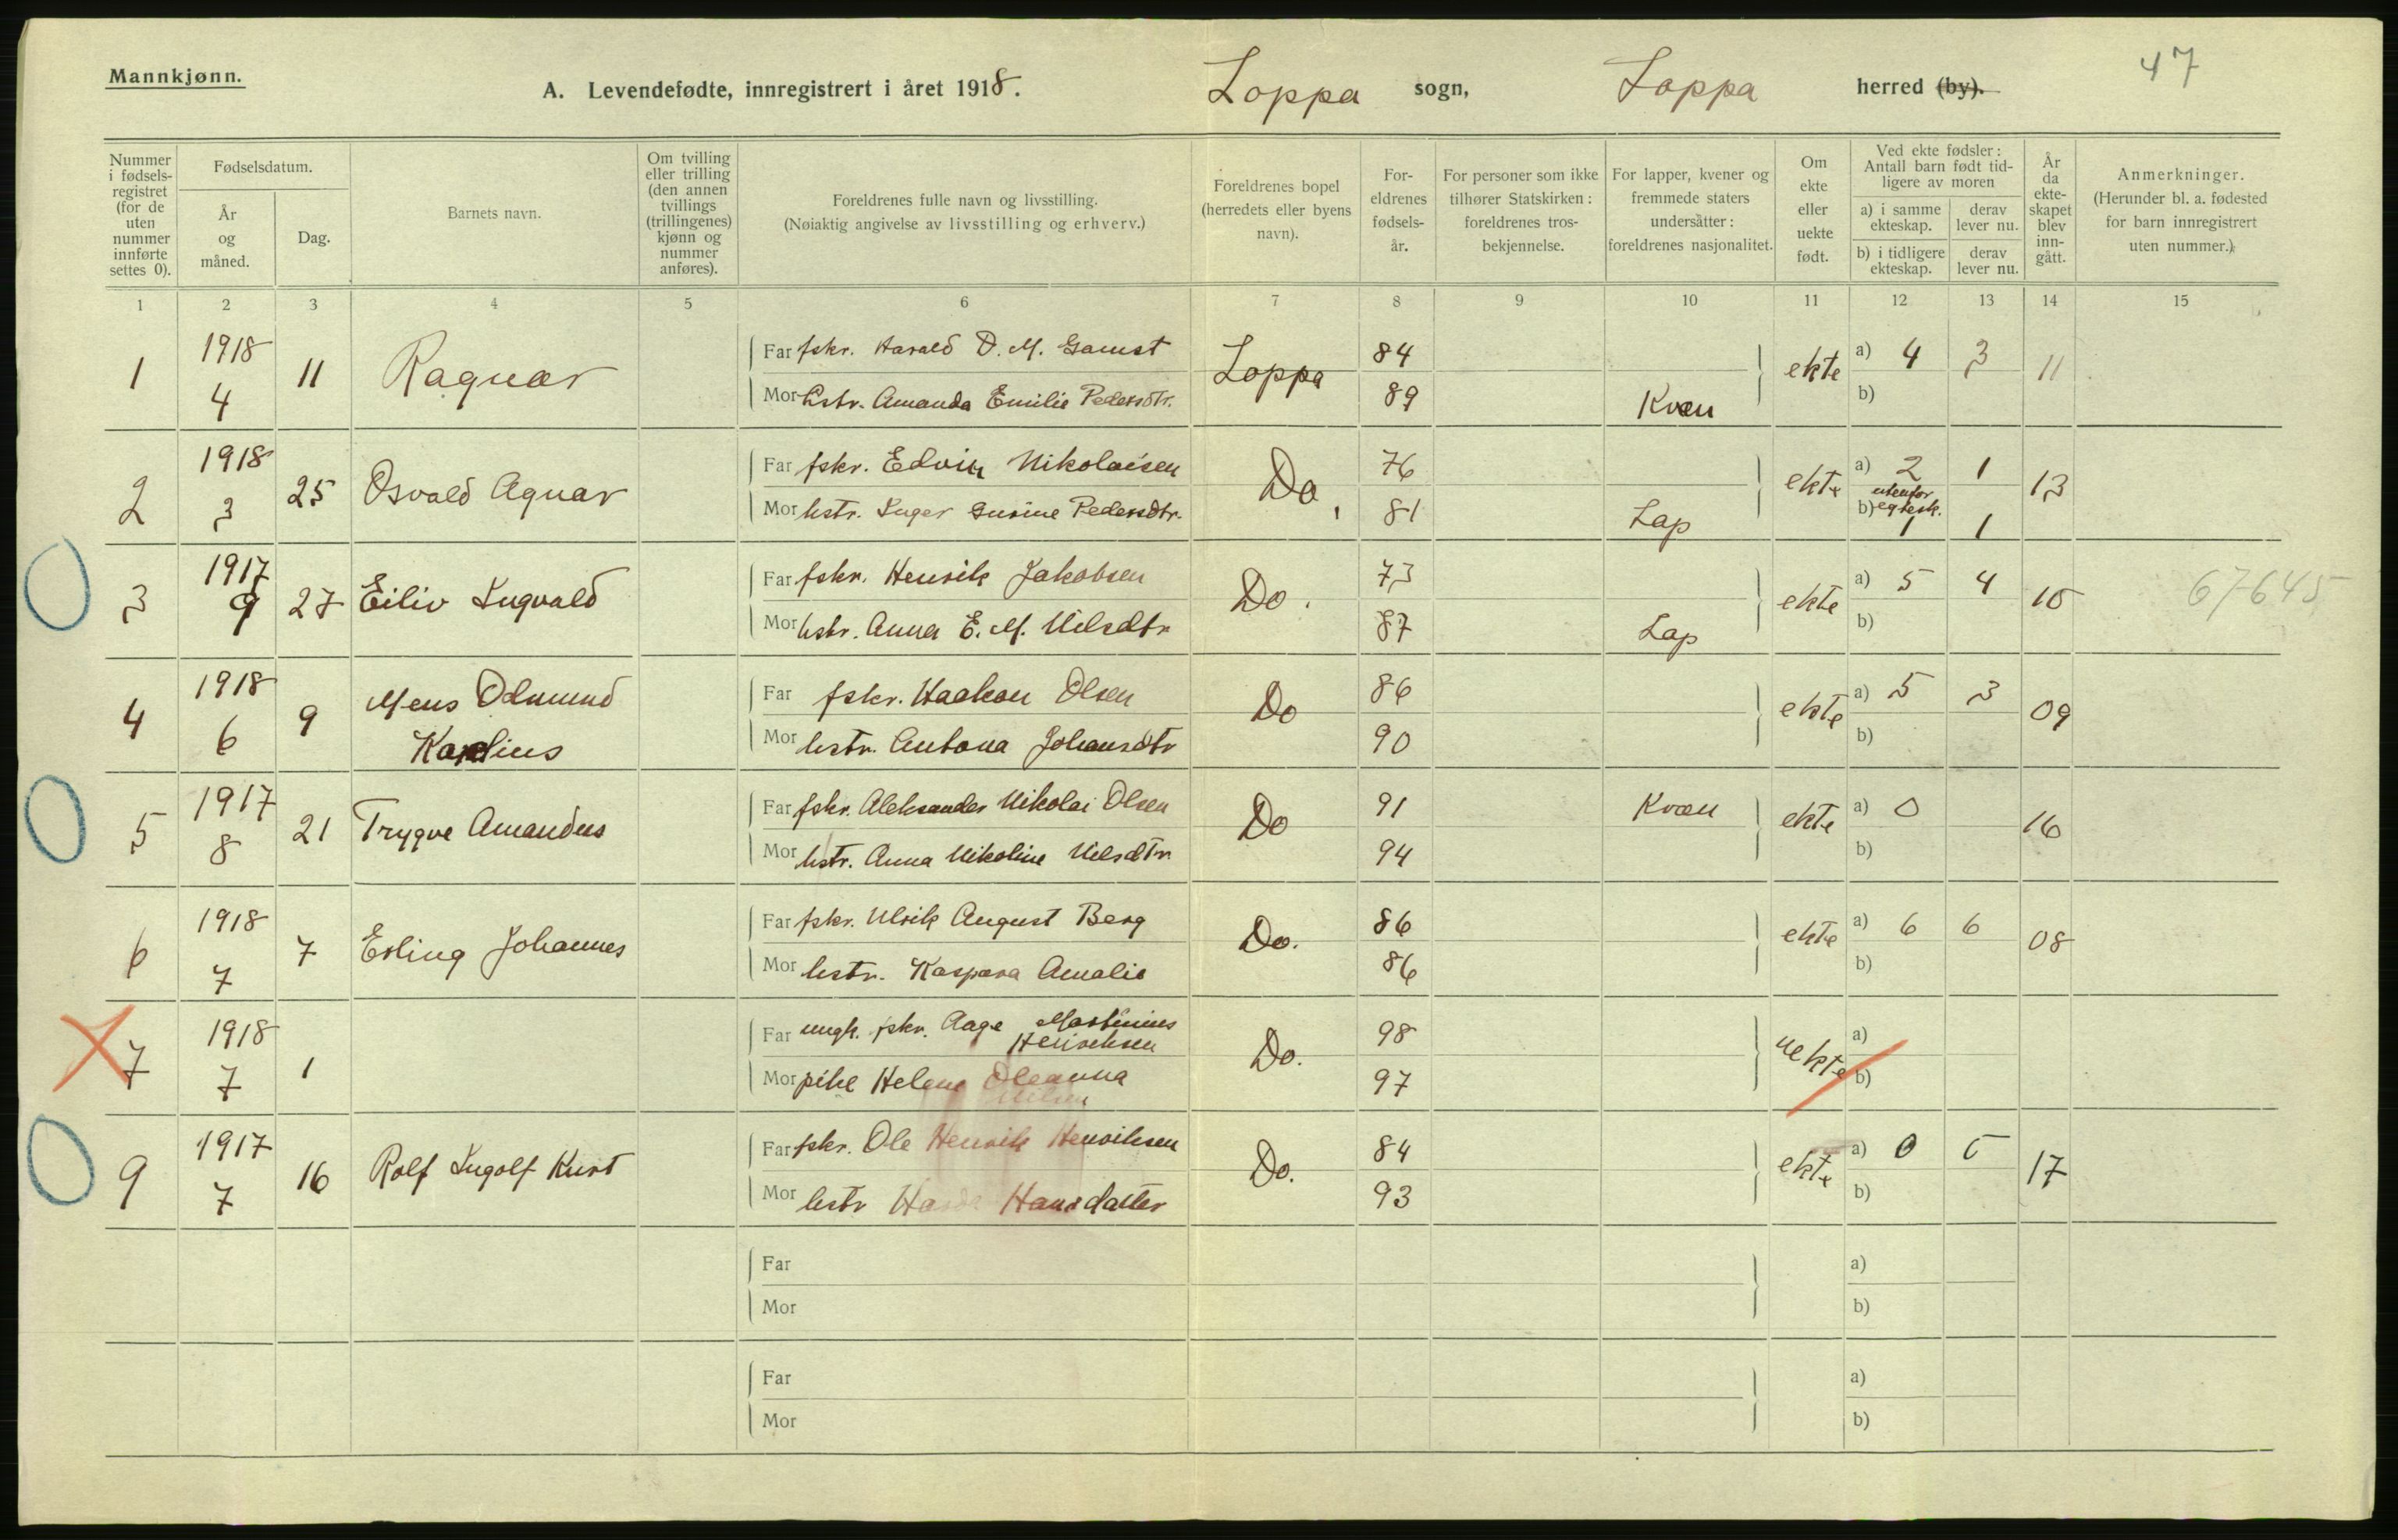 47
Mannkjønn.
A. Levendefødte, innregistrert i året 1918. Loppa sogn, Loppa herred (by).
Nummer i fødsels-registret (for de uten nummer innførte settes 0).
Fødselsdatum.
År og måned.
Dag.
Barnets navn.
Om tvilling eller trilling (den annen tvillings (trillingenes) kjønn og nummer anføres).
Foreldrenes fulle navn og livsstilling.
(Nøiaktig angivelse av livsstilling og erhverv.)
Foreldrenes bopel (herredets eller byens navn).
For-eldrenes fødsels-år.
For personer som ikke tilhører Statskirken: foreldrenes tros-bekjennelse.
For lapper, kvener og fremmede staters undersåtter: foreldrenes nasjonalitet.
Om ekte eller uekte født.
Ved ekte fødsler: Antall barn født tid-ligere av moren
a) i samme ekteskap.
derav lever nu.
b) i tidligere ekteskap.
derav lever nu.
År da ekte-skapet blev inn-gått.
Anmerkninger.
(Herunder bl. a. fødested for barn innregistrert uten nummer.)
1 2 3 4 5 6 7 8 9 10 11 12 13 14 15
1 1918 4 11 Ragnar
Far fskr. Harald D. M. Gamst Loppa 84 ekte a) 4 3 11
Mor hstr. Amanda Emilie Pedersdtr. 89 Kvæn b)
2 1918 3 25 Osvald Agnar
Far fskr. Edvin Nikolaisen Do, 76 ekte a) 2 1 13
Mor hstr. Inger Gurine Pedersdtr. 81 Lap b) utenfor egtesk. 1 1
3 1917 9 27 Eiliv Ingvald
Far fskr. Henrik Jakobsen Do. 73 ekte a) 5 4 10 67645
Mor hstr. Anna E. M. Nilsdtr 87 Lap b)
4 1918 6 9 Mens Odmund Karelius
Far fskr. Haakon Olsen Do 86 ekte a) 5 3 09
Mor hstr. Antona Johansdtr 90 b)
5 1917 8 21 Trygve Amandus
Far fskr. Aleksander Nikolai Olsen Do 91 Kvæn ekte a) 0 16
Mor hstr. Anna Nikoline Nilsdtr. 94 b)
6 1918 7 7 Erling Johannes
Far fskr. Ulrik August Berg Do. 86 ekte a) 6 6 08
Mor hstr. Kaspara Amalie 86 b)
7 1918 7 1
Far ungk. fskr. Aage Martinius Henriksen Do. 98 uekte a)
Mor pike Helene Oleanna Nilsen 97 b)
9 1917 7 16 Rolf Ingolf Kurt
Far fskr. Ole Henrik Henriksen Do. 84 ekte a) 0 17
Mor hstr Hansdatter 93 b)
Far a)
Mor b)
Far a)
Mor b)